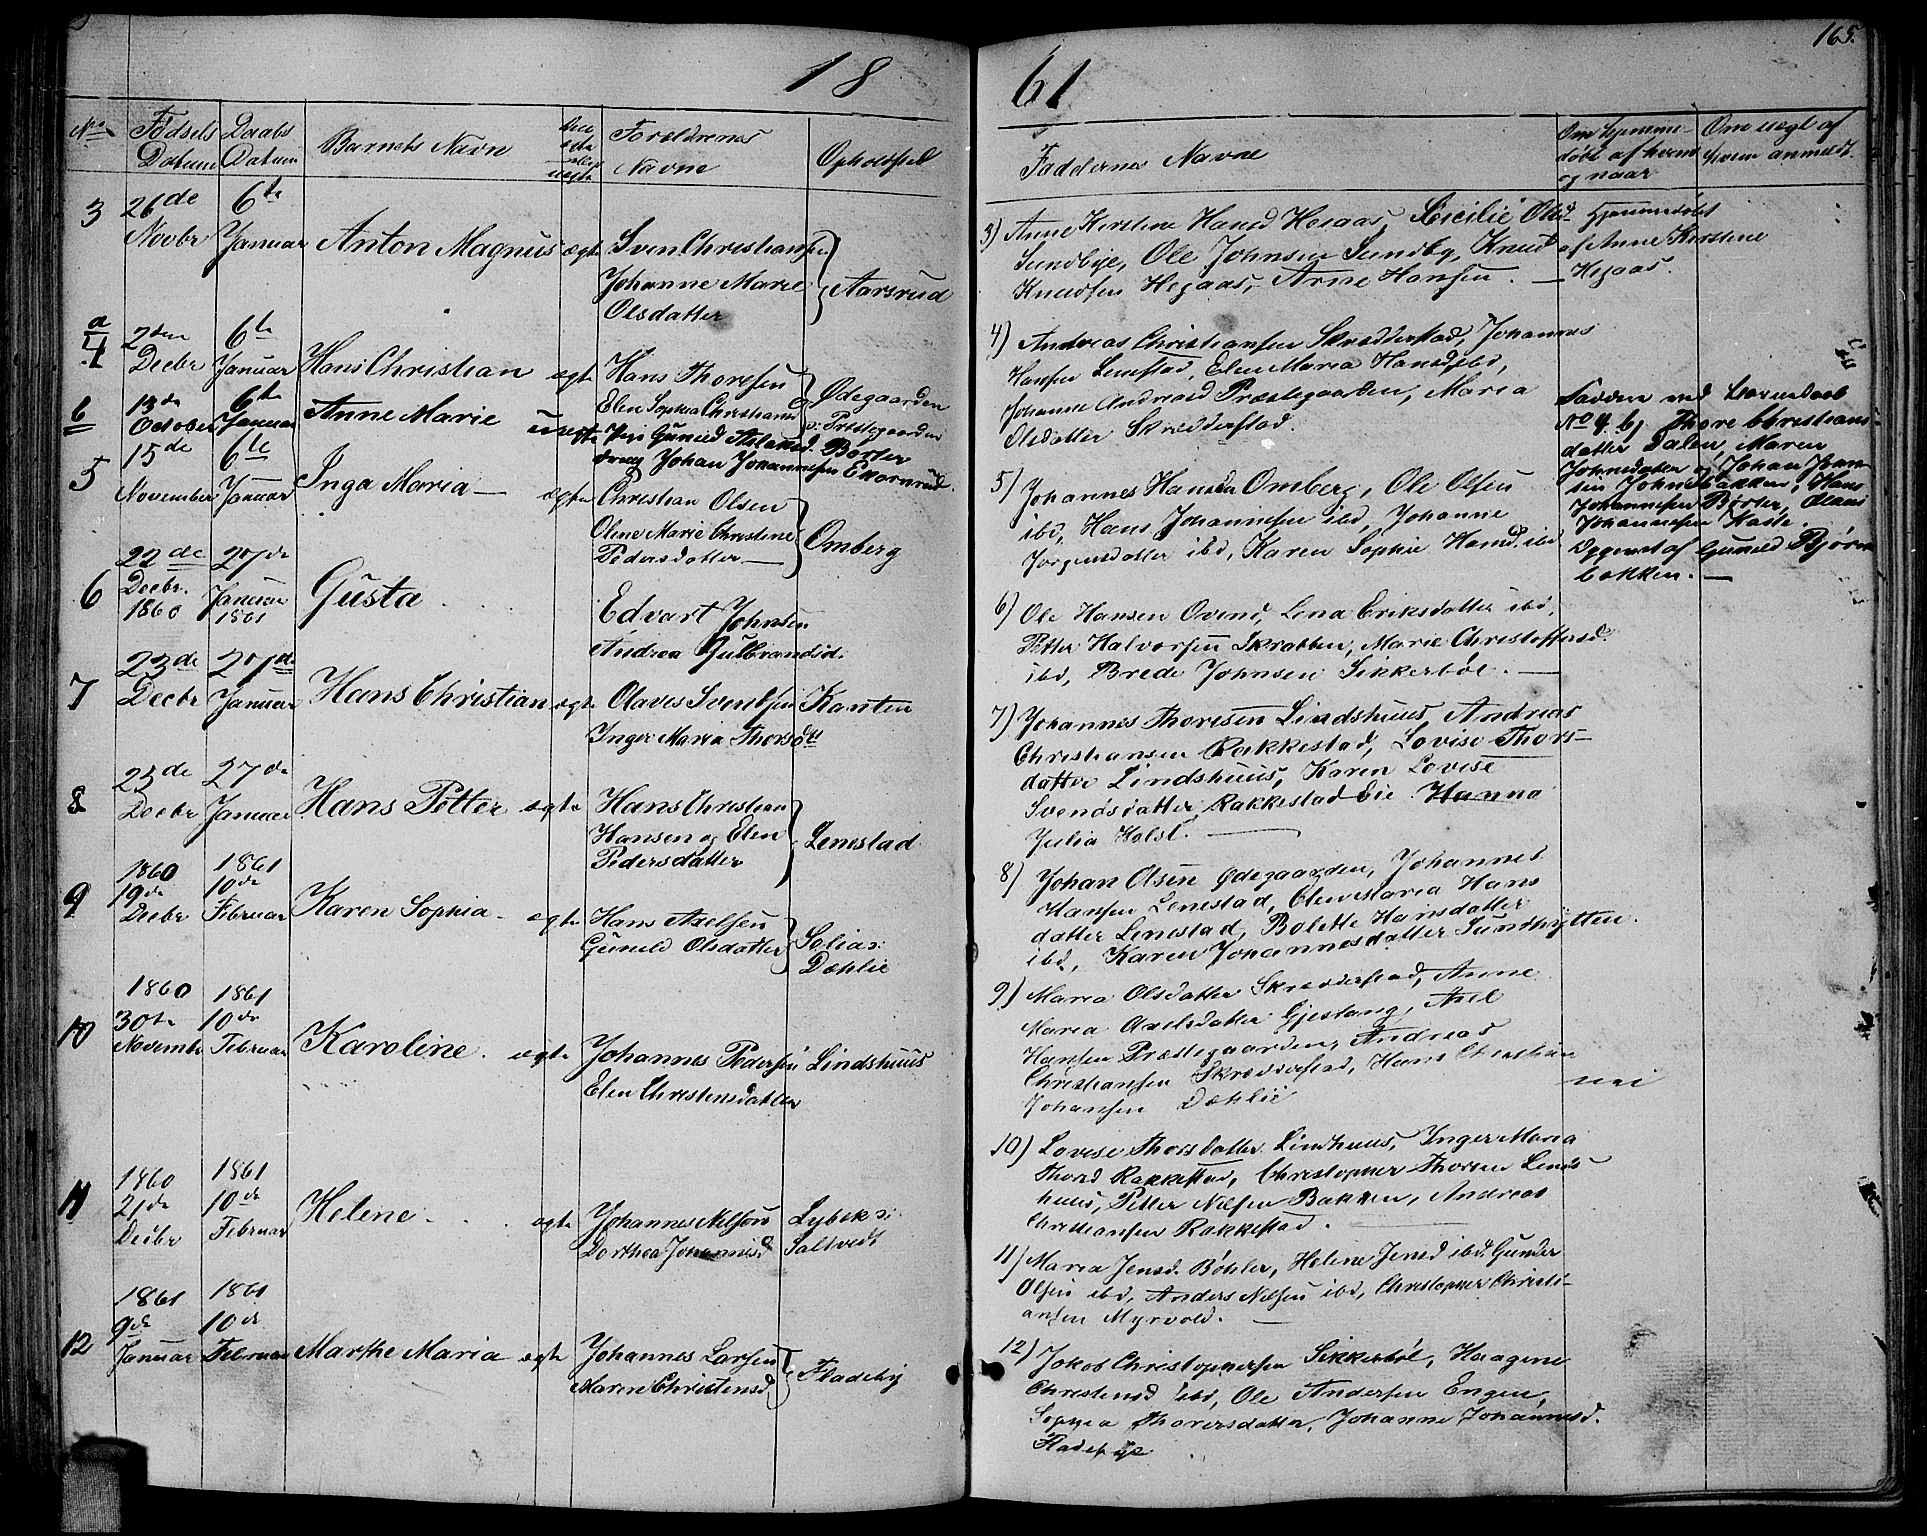 18 61
165.
No Fødsels Datum Daabs Datum Barnets Navn Forældrenes Navne Opholdsted
3 26de Novbr 6te Januar Anton Magnus ægte Sven Christiansen
Johanne Marie
Olsdatter
Aarsrud
a
4 2den Decbr 6te Januar Hans Christian ægte Hans Thoresen
Elen Sophia Christiansd
Ødegaarden
v: Præstegaarden
b 13de October 6te Januar Anne Marie uægte Pige Guneld Aslaksd. Børter
Johan Johannesen Ekornrud.
5 15de November 6te Januar Inga Maria ægte Christian Olsen
Oline Marie Christine
Pedersdatter
Omberg
6 22de Decbr. 1860 27de Januar 1861 Gusta
Edvart Johnsen
Andrea Gulbrandsd.
7 23de Decbr 27de Januar Hans Christian ægte Olaves Svendsen Kanten
Inger Maria Thorsd
8 25de Decbr 27de Januar Hans Petter ægte Hans Christian
Hansen og Elen
Pedersdatter
Lenestad
9 1860 19de Decbr 1861 10de Februar Karen Sophia ægte Hans Axelsen
Guneld Olsdatter
Solias:
Dæhlie
10 1860 30te Novembr 1861 10de Februar Karoline. ægte Johannes Pedersen Lindshuus
Elen Christensdatter
11 1860 21de Decbr 1861 10de Februar Helene ægte Johannes Nelson
Dorthea Johannesd
Lybeks:
Saltvedt
12 1861 9de Januar 1861 10de Februar Marthe Maria ægte Johannes Larsen
Maren Christensd
Fladeby
Faddernes Navne
Om hjemmedøbt af hvem og naar
Om uægt af hvem anmeldt.
3) Anne Kirstine Hansd Hegaas, Cecilie Olsd
Sundbye, Ole Johnsen Sundby, Knud
Knudsen Hegaas, Arne Hansen.
Hjemmedøbt
af Anne Kirstine
Hegaas.
4) Andreas Christiansen Skrædderstad, Johannes
Hansen Lenestad, Elen Maria Hansd ibd,
Johanne Andreasd Præstegaarden, Maria
Olsdatter Skrædderstad.
Faddere ved Barnedaab
No 4. b) Thore Christians-
datter Dalen, Maren
Johnsdatter og Johan
Johnsbakken, Hans
Johannesen Børter, Olaus
Johannesen Haste.
Opgivet af Guneld Bjørn
bækken.
5) Johannes Hansen Omberg, Ole Olsen
ibd, Hans Johannesen ibd, Johanne
Jørgensdatter ibd, Karen Sophie Hansd. ibd
6) Ole Hansen Ovend, Lena Eriksdatter ibd,
Petter Halvorsen Skratten, Marie Christoffersd.
ibd, Brede Johnsen Sikkerbøl.
7) Johannes Thoresen Lindshuus, Andreas
Christiansen Rakkestad, Lovise Thors-
datter Lindshuus, Karen Lovise
Svendsdatter Rakkestad Eie Hanna
Julia Holst.
8) Johan Olsen Ødegaarden, Johannes
Hansen Lenestad, Elen Maria Hans
datter Lenestad, Bolette Hansdatter
ibd, Karen Johannesdatter Sundhytten.
9) Maria Olsdatter Skrædderstad, Anne
Maria Axelsdatter Gjestang, Axel
Hansen Præstegaarden, Andreas
Christiansen Skrædderstad, Hans Christian
Johansen Dæhlie
nei
10) Lovise Thorsdatter Lindhuus, Inger Maria
Thorsd Rakkestad, Christopher Thoresen Linds
huus, Petter Nelsen Bakken, Andreas
Christiansen Rakkestad.
11) Maria Jensd. Bøhler, Helene Jensd ibd. Gunder
Olsen ibd, Anders Nelsen ibd, Christopher Christi-
ansen Myrvold.
12) Jakob Christophersen Sikkerbøl, Haagine
Christensd ibd, Ole Andersen Engen,
Sophia Thorersdatter, Johanne Johannesd.
Fladebye